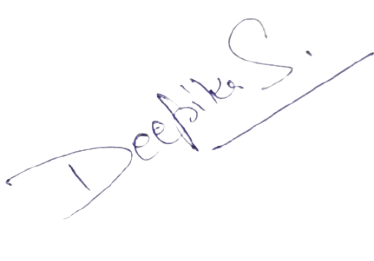 Deepika S.